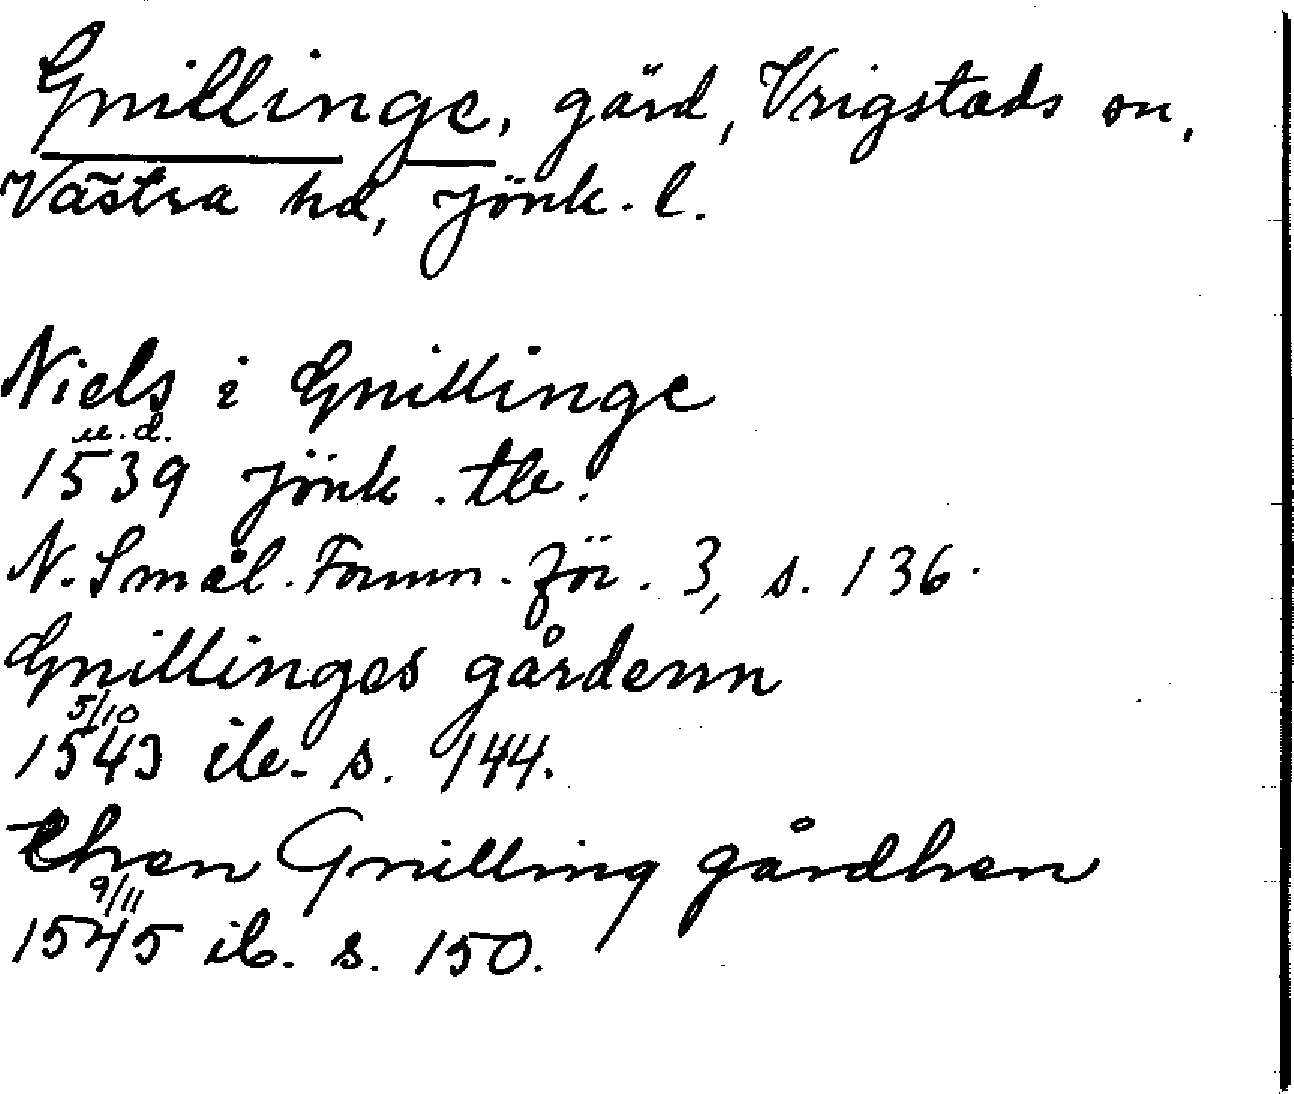 Gnillinge, gård, Vrigstads sn,
Västra hd, Jönk. l.
Niels i Gnillinge
u.d.
1539 Jönk. tb.
N. Smål. Fornm. för. 3, s. 136.
Gnillinges gårdenn
5/10
1543 ib. s. 144.
Then Gnilling gårdhen
9/11
1545 ib. s. 150.